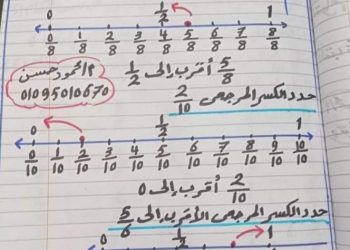 0 1/2 1
0/8 1/8 2/8 3/8 4/8 5/8 6/8 7/8 8/8
5/8 أقرب إلى 1/2
م/محمود حسن
01095010670
حدد الكسر المرجعى 2/10
0 1/2 1
0/10 1/10 2/10 3/10 4/10 5/10 6/10 7/10 8/10 9/10 10/10
2/10 أقرب إلى 0
حدد الكسر المرجعى الأقرب إلى 5/6
0 1/2 1